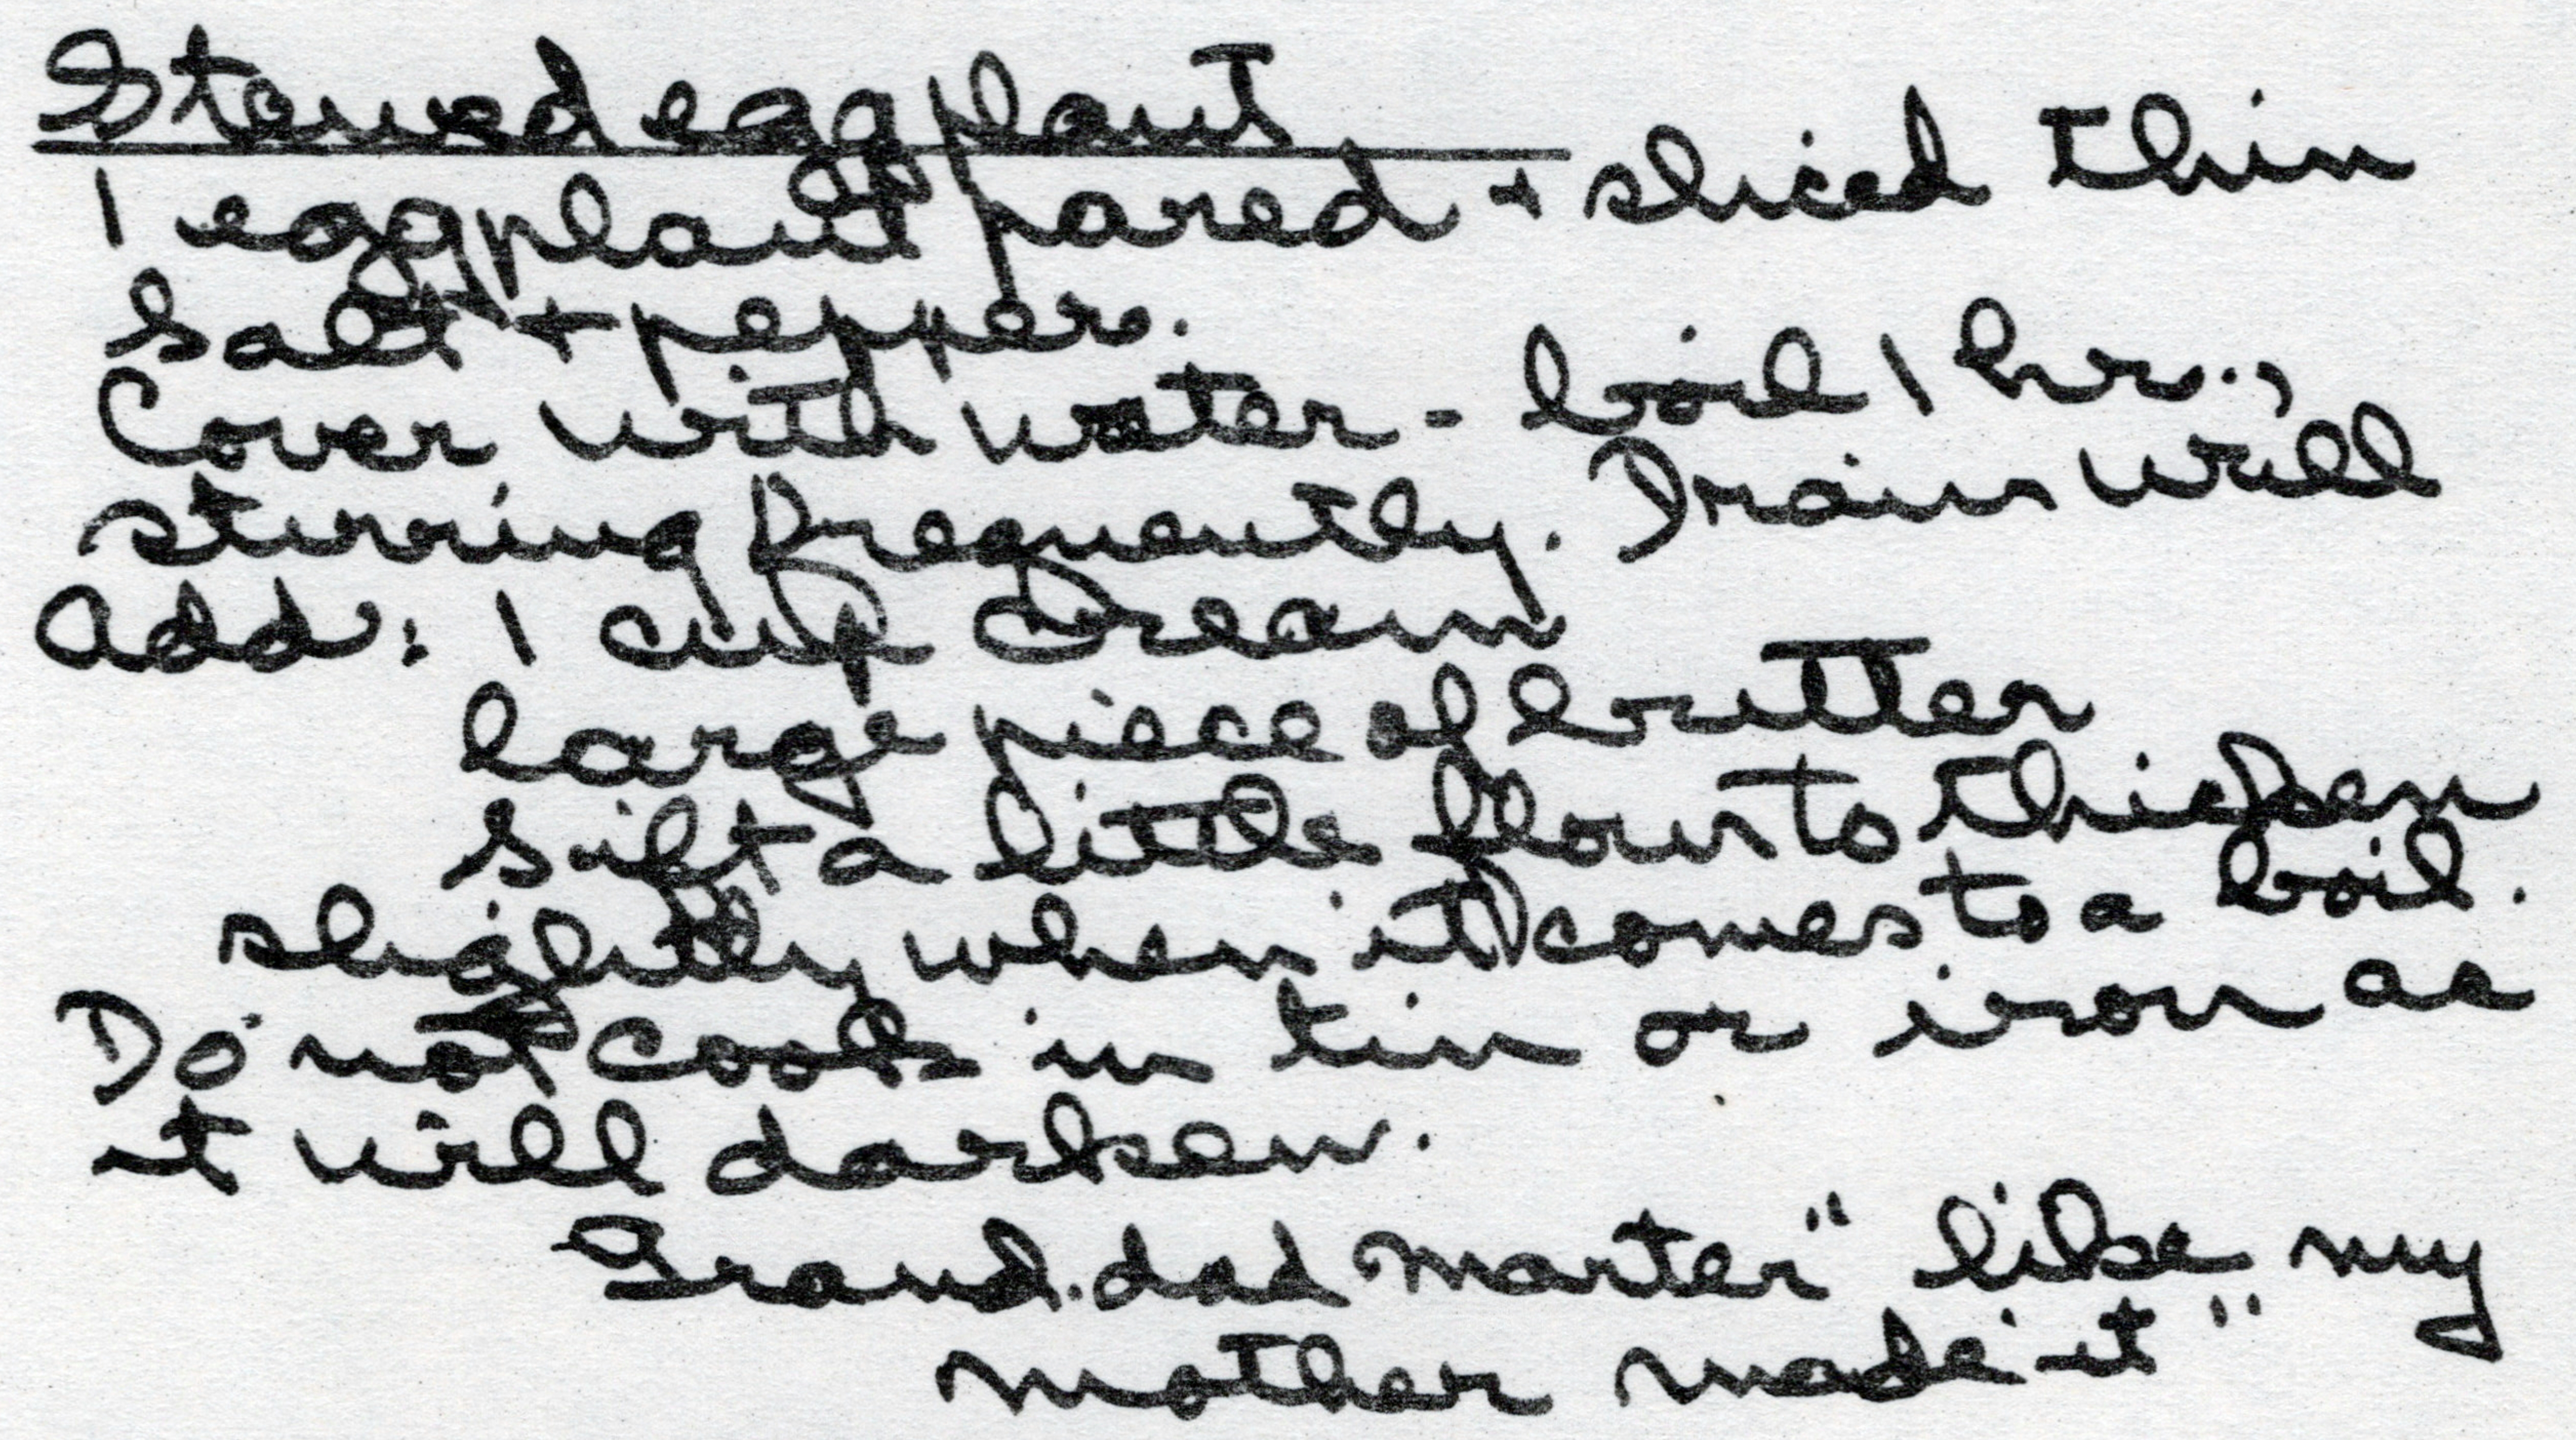 Stewed eggplant
1 eggplant pared + sliced thin
Salt + pepper.
Cover with water - boil 1 hr.,
stirring frequently. Drain well
Add: 1 cup cream
large piece of butter
Sift a little flour to thicken
slightly when it comes to a boil.
Do not cook in tin or iron as
it will darken.
Grand.dad Marter "like my
mother made it"